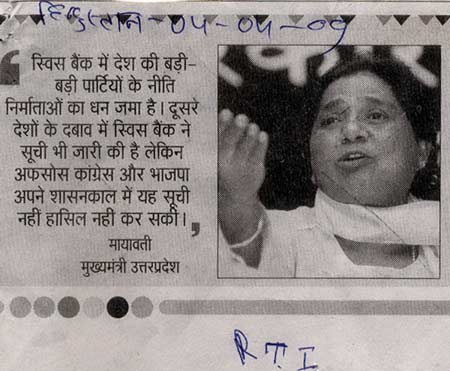 हिन्दुस्तान-04-04-09
❛ स्विस बैंक में देश की बड़ी-
बड़ी पार्टियों के नीति
निर्माताओं का धन जमा है। दूसरे
देशों के दबाव में स्विस बैंक ने
सूची भी जारी की है लेकिन
अफसोस कांग्रेस और भाजपा
अपने शासनकाल में यह सूची
नहीं हासिल नहीं कर सकी। ❜
मायावती
मुख्यमंत्री उत्तरप्रदेश
R T I